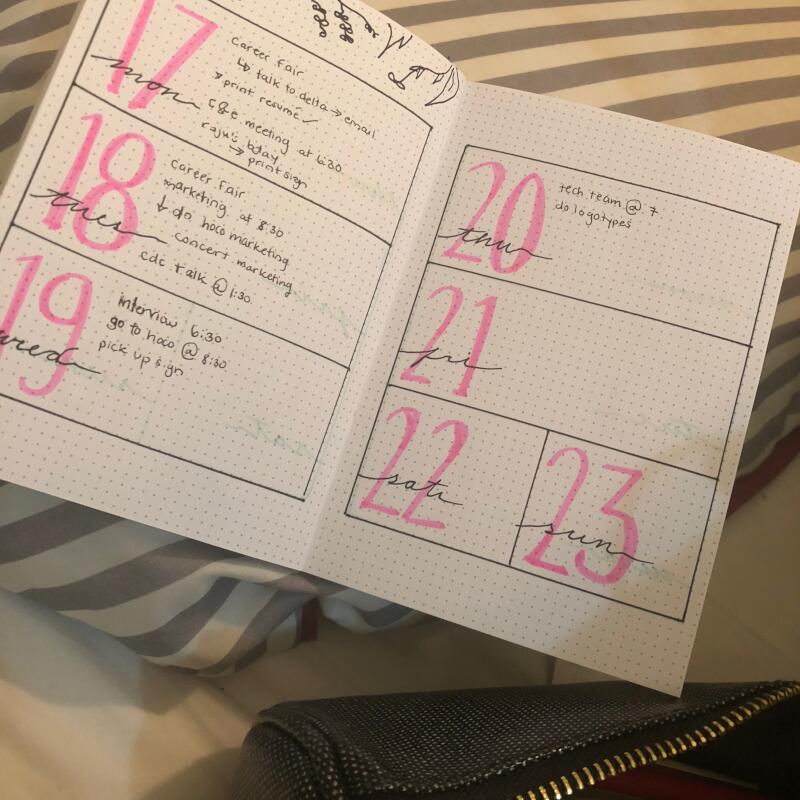 17
mon
career fair
↳ talk to delta → email
→ print resume ✓
C&E meeting at 6:30
raju's bday
→ print sign
18
tues
career fair
marketing at 8:30
↳ do hoco marketing
concert marketing
cdc talk @ 1:30
19
wed
interview 6:30
go to hoco @ 8:30
pick up sign
20
thu
tech team @ 7
do logotypes
21
fri
22
sat
23
sun